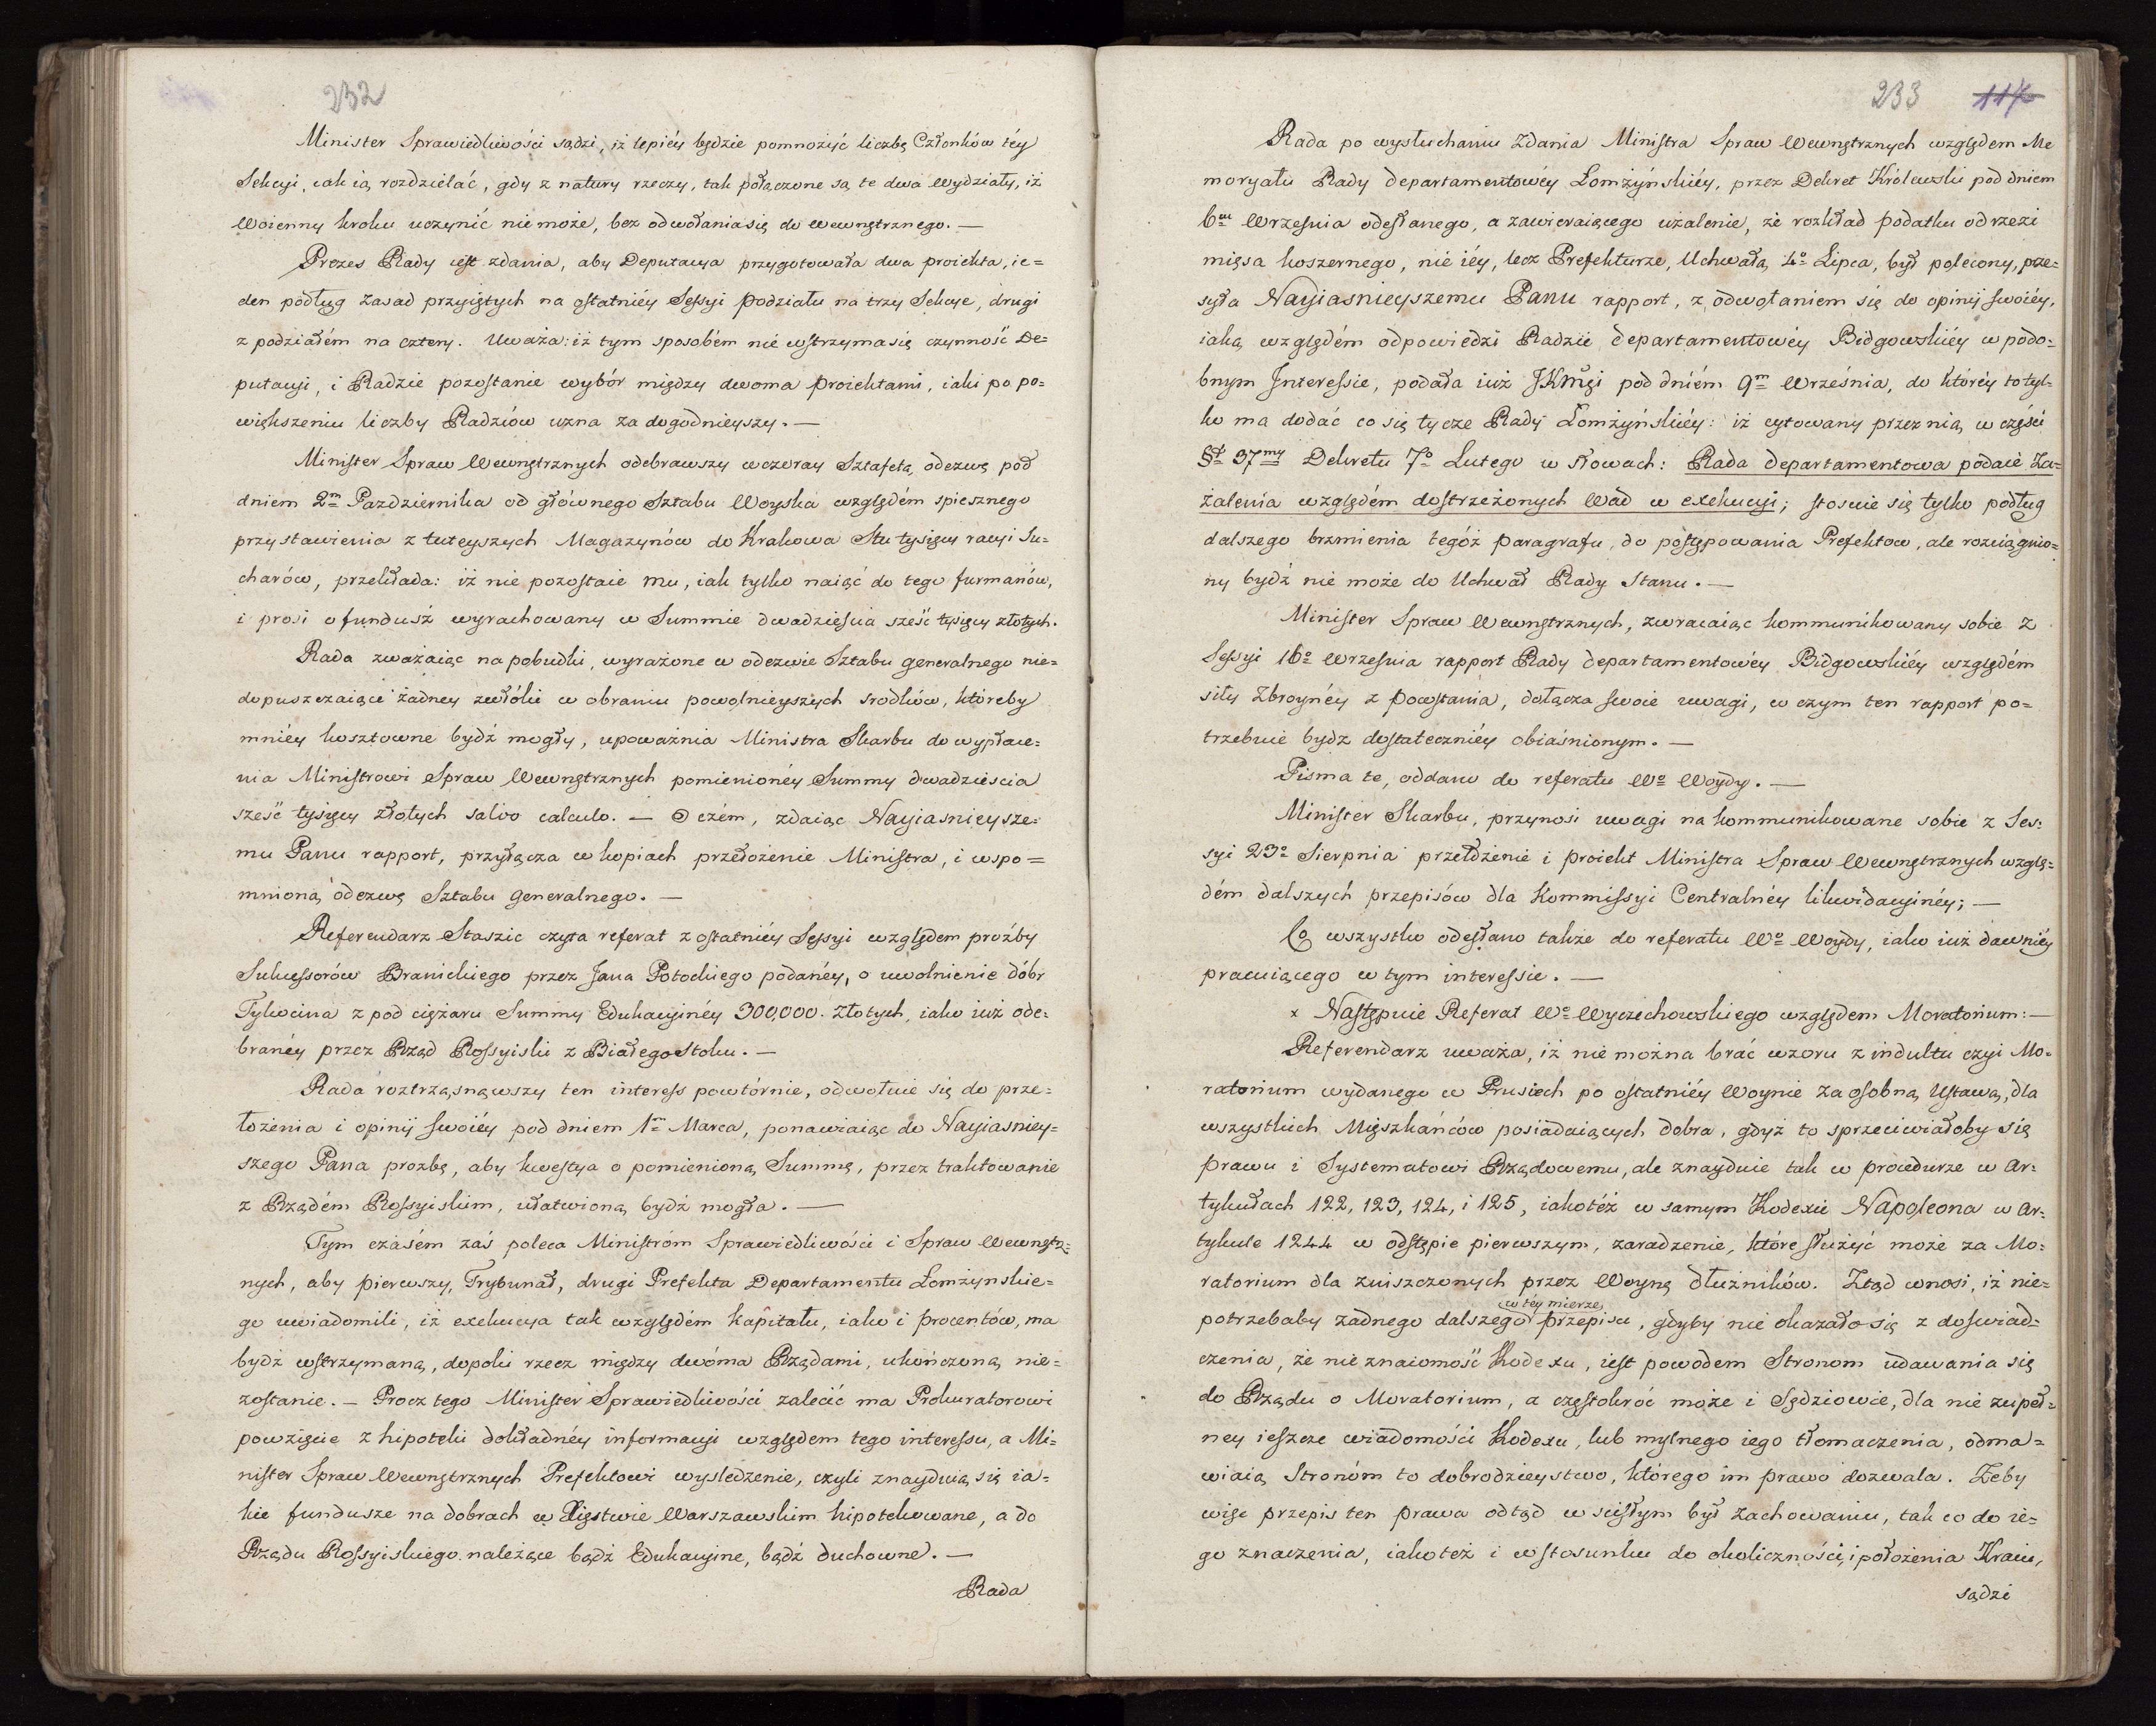 232
Minister Sprawiedliwości sądzi, iż lepiéy będzie pomnożyć liczbę Członków téy
Sekcyi, iak ią rozdzielać, gdy z natury rzeczy, tak połączone są te dwa wydziały, iż
Woienny kroku uczynić nie może, bez odwołania się do wewnętrznego. —
Prezes Rady iest zdania, aby Deputacya przygotowała dwa proiekta, ie=
den podług zasad przyiętych na ostatniéy Sessyi podziału na trzy Sekcye, drugi
z podziałém na cztery. Uważa: iż tym sposobém nie wstrzyma się czynność De=
putacyi, i Radzie pozostanie wybór między dwoma proiektami, iaki po po=
większeniu liczby Radziów uzna za dogodnieyszy. —
Minister Spraw Wewnętrznych odebrawszy wczoray Sztafetą odezwę pod
dniem 2m Pazdziernika od głównego Sztabu Woyska względém spiesznego
przystawienia z tuteyszych Magazynów do Krakowa Stu tysięcy racyi Su=
charów, przekłada: iż nie pozostaie mu, iak tylko naiąć do tego furmanów,
i prosi o fundusz wyrachowany w Summie dwadzieścia sześć tysięcy złotych.
Rada zważaiąc na pobudki, wyrażone w odezwie Sztabu generalnego nie=
dopuszczaiące żadney zwłóki w obraniu powolnieyszych srodków, któreby
mniéy kosztowne bydź mogły, upoważnia Ministra Skarbu do wypłace=
nia Ministrowi Spraw Wewnętrznych pomienionéy Summy dwadzieścia
sześć tysięcy złotych salvo calculo. — O czém, zdaiąc Nayiasnieysze=
mu Panu rapport, przyłącza w kopiach przełożenie Ministra, i wspo=
mnioną odezwę Sztabu generalnego. —
Referendarz Staszic czyta referat z ostatniéy Sessyi względem proźby
Sukcessorów Branickiego przez Jana Potockiego podanéy, o uwolnienie dóbr
Tykocina z pod ciężaru Summy Edukacyinéy 300,000. złotych, iako iuż ode=
branéy przez Rząd Rossyiski z Białegostoku. —
Rada roztrząsnąwszy ten interess powtórnie, odwołuie się do prze=
łożenia i opinij swoiéy pod dniem 1m Marca, ponawiaiąc do Nayiasniey=
szego Pana prozbę, aby kwestya o pomienioną Summę, przez traktowanie
z Rządém Rossyiskim, ułatwioną bydź mogła. —
Tym czasém zaś poleca Ministrom Sprawiedliwości i Spraw Wewnętrz=
nych, aby pierwszy, Trybunał, drugi Prefekta Departamentu Łomżynskie=
go uwiadomili, iż exekucya tak względém kapitału, iako i procentów, ma
bydź wstrzymaną, dopoki rzecz między dwóma Rządami, ukończoną nie=
zostanie. — Procz tego Minister Sprawiedliwości zalecić ma Prokuratorowi
powzięcie z hipoteki dokładnéy informacyi względem tego interessu, a Mi=
nister Spraw Wewnętrznych Prefektowi wysledzenie, czyli znayduią się ia=
kie fundusze na dobrach w Xięstwie Warszawskim hipotekowane, a do
Rządu Rossyiskiego należące bądź Edukacyine, bądź duchowne. —
Rada
233 117
Rada po wysłuchaniu zdania Ministra Spraw Wewnętrznych względem Me
moryału Rady departamentowéy Łomżyńskiéy, przez Dekret Królewski pod dniem
6m Wrzesnia odesłanego, a zawieraiącego użalenie, że rozkład podatku od rzezi
mięsa koszernego, nie iéy, lecz Prefekturze, Uchwałą 4o Lipca, był polecony, prze=
syła Nayiasnieyszemu Panu rapport, z odwołaniem się do opinij swoiéy,
iaką względém odpowiedzi Radzie departamentowéy Bidgowskiéy w podo=
bnym Interessie, podała iuż JKMci pod dniém 9m Września, do któréy to tyl=
ko ma dodać co się tycze Rady Łomżyńskiéy: iż cytowany przez nią w części
§t 37my Dekretu 7o Lutego w słowach: Rada departamentowa podaie Za=
żalenia względém dostrzeżonych Wad w exekucyi; stosuie się tylko podług
dalszego brzmienia tegóż paragrafu, do postępowania Prefektow, ale rozciągnio=
ny bydź nie może do Uchwał Rady Stanu. —
Minister Spraw Wewnętrznych, zwracaiąc kommunikowany sobie z
Sessyi 16o Wrzesnia rapport Rady departamentowéy Bidgowskiéy względém
siły zbroynéy z powstania, dołącza swoie uwagi, w czym ten rapport po=
trzebuie bydz dostateczniéy obiaśnionym. —
Pisma te, oddano do referatu Wo Woydy. —
Minister Skarbu, przynosi uwagi na kommunikowane sobie z Ses=
syi 23o Sierpnia przełożenie i proiekt Ministra Spraw Wewnętrznych wzglę=
dém dalszych przepisów dla Kommissyi Centralnéy likwidacyinéy; —
Co wszystko odesłano także do referatu Wo Woydy, iako iuż dawniéy
pracuiącego w tym interessie. —
x Następuie Referat Wo Wyczechowskiego względem Moratorium: —
Referendarz uważa, iż nie można brać wzoru z indultu czyi Mo=
ratorium wydanego w Prusiech po ostatniéy Woynie za osobną Ustawą, dla
wszystkich Mięszkańców posiadaiących dobra, gdyż to sprzeciwiałoby się
prawu i Systematowi Rządowemu, ale znayduie tak w procedurze w Ar=
tykułach 122, 123, 124, i 125, iakotéż w samym Kodexie Napoleona w Ar=
tykule 1244 w odstępie pierwszym, zaradzenie, które służyć może za Mo=
ratorium dla zniszczonych przez Woynę dłużników. Ztąd wnosi, iż nie=
potrzebaby żadnego dalszego w téy mierze przepisu, gdyby nie okazało się z doswiad=
czenia, że nieznaiomość Kodexu, iest powodem Stronom udawania się
do Rządu o Moratorium, a częstokroć może i Sędziowie, dla nie zupeł=
ney ieszcze wiadomości Kodexu, lub mylnego iego tłomaczenia, odma=
wiaią Stronóm to dobrodzieystwo, którego im prawo dozwala. Zeby
więc przepis ten prawa odtąd w scisłym był zachowaniu, tak co do ie=
go znaczenia, iakotéż i w stosunku do okoliczności, i położenia Kraiu,
sądzi